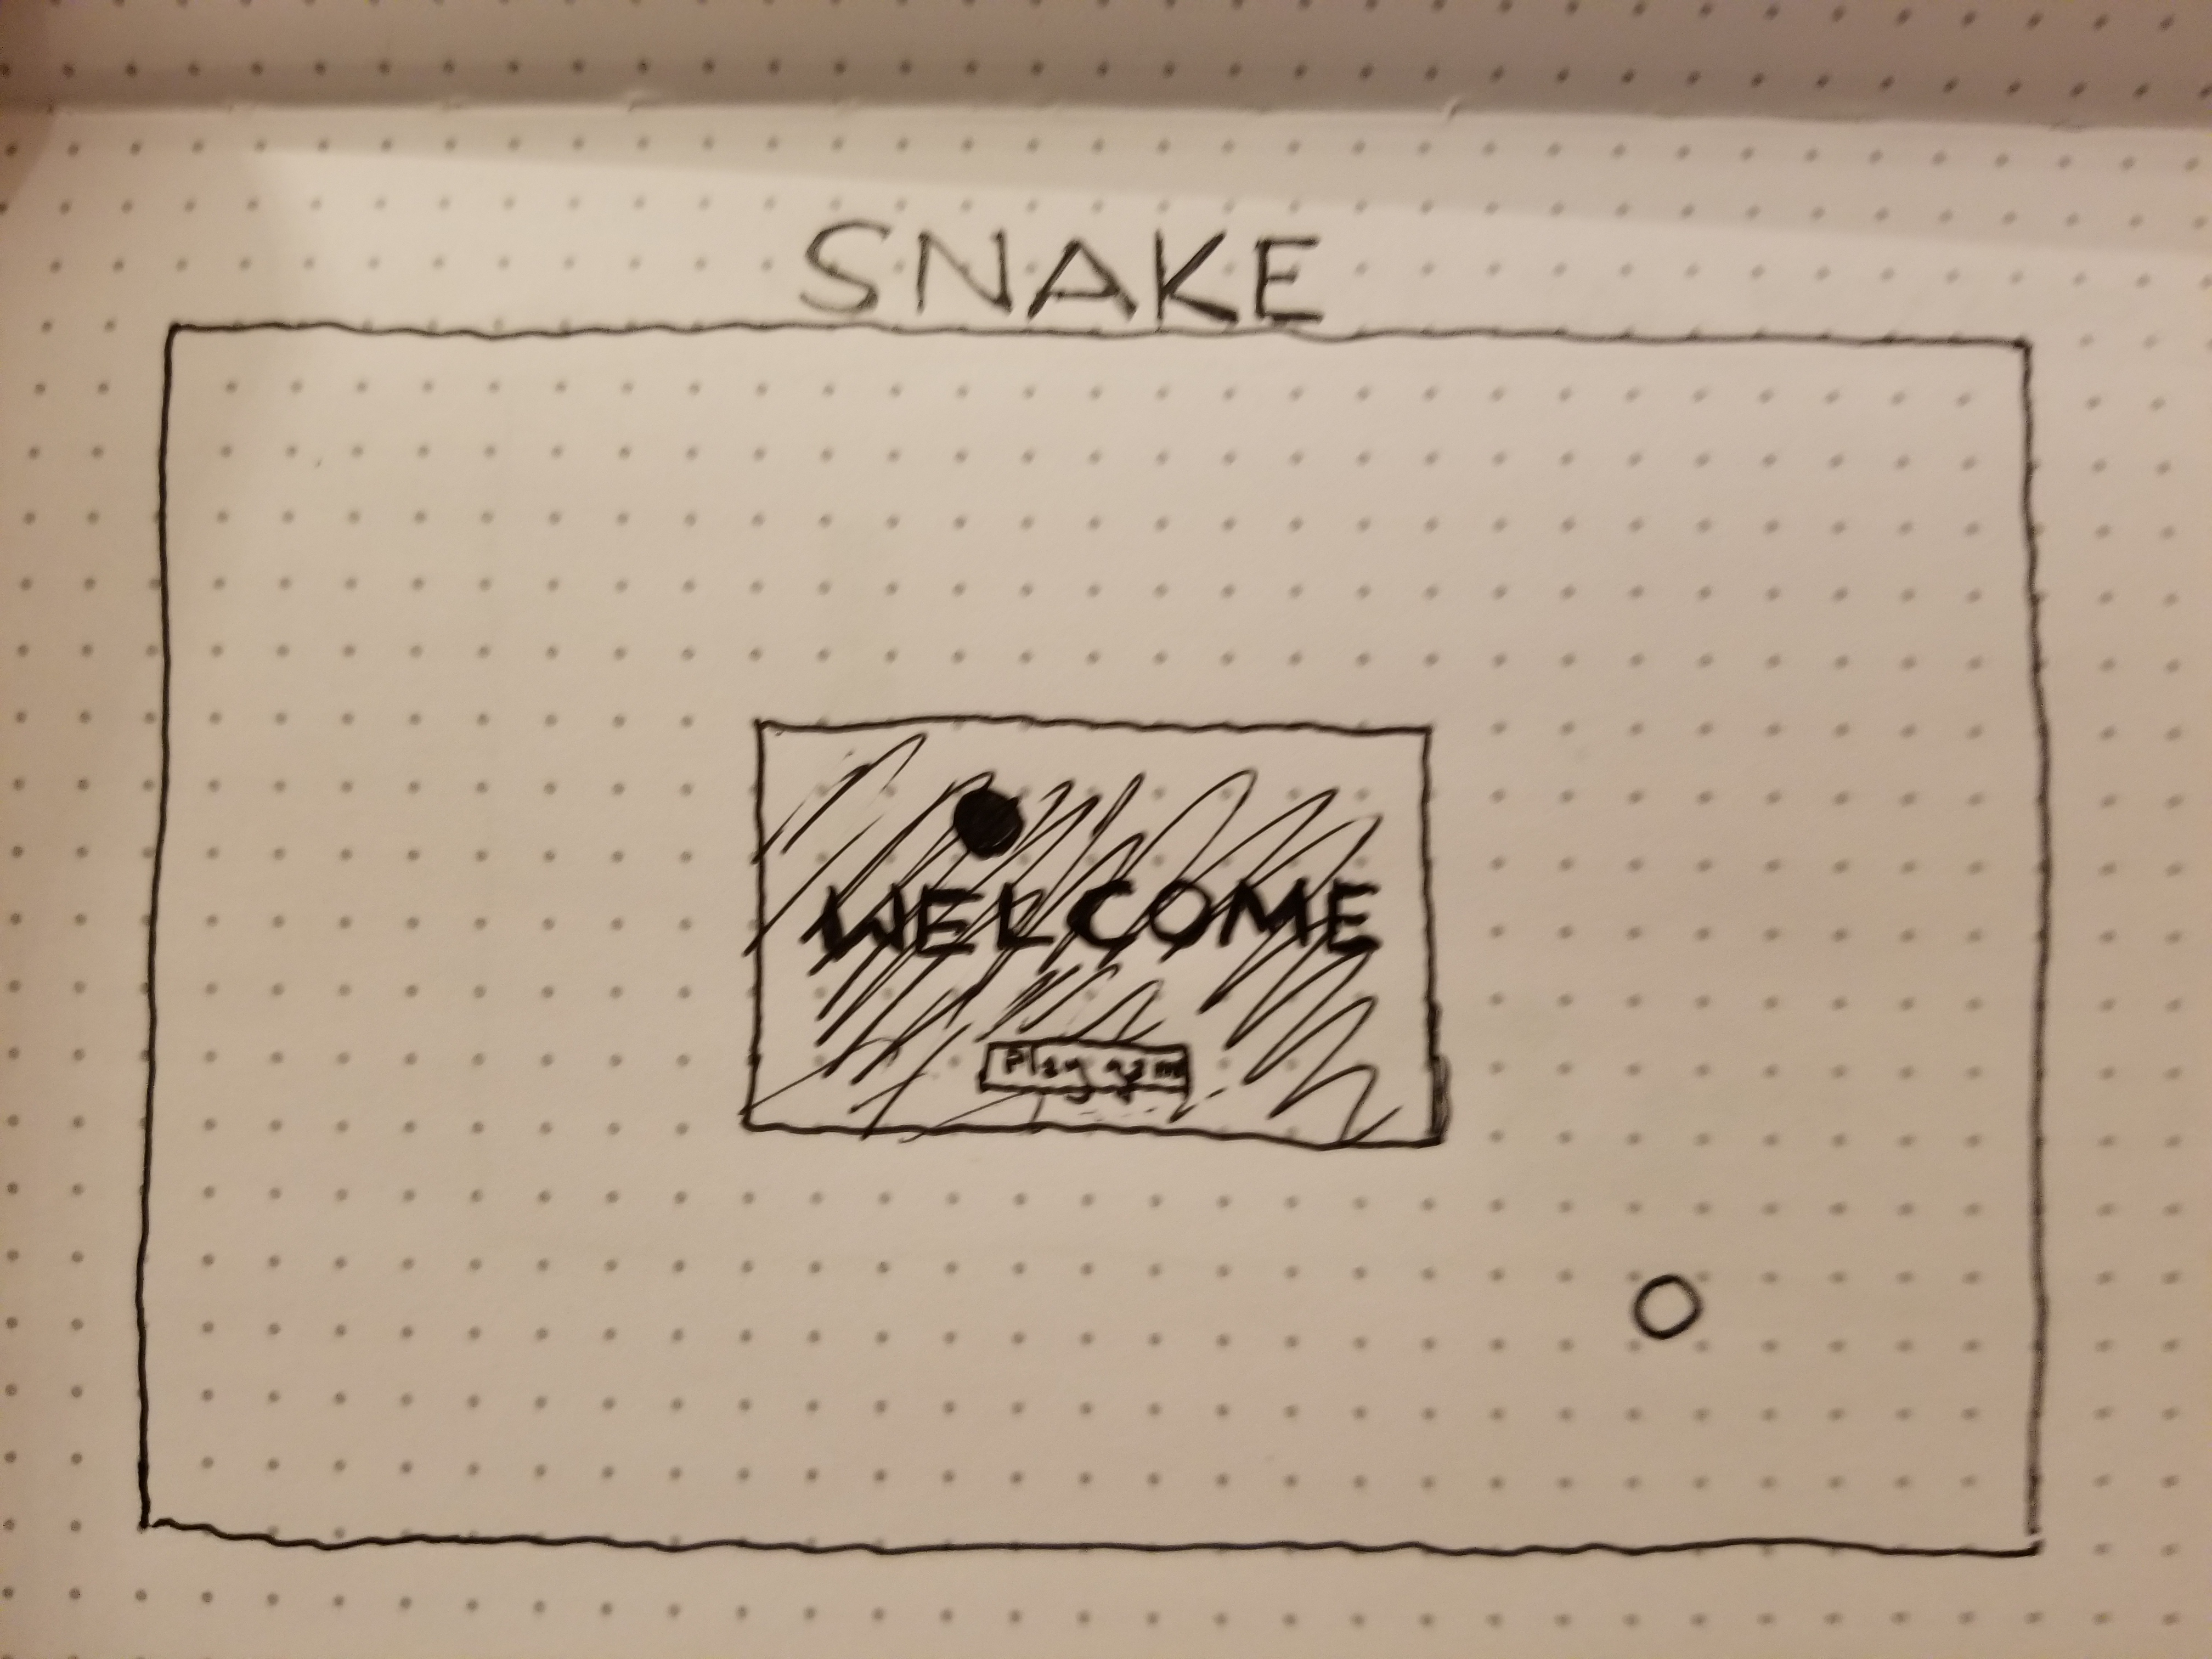 SNAKE
WELCOME
Play game